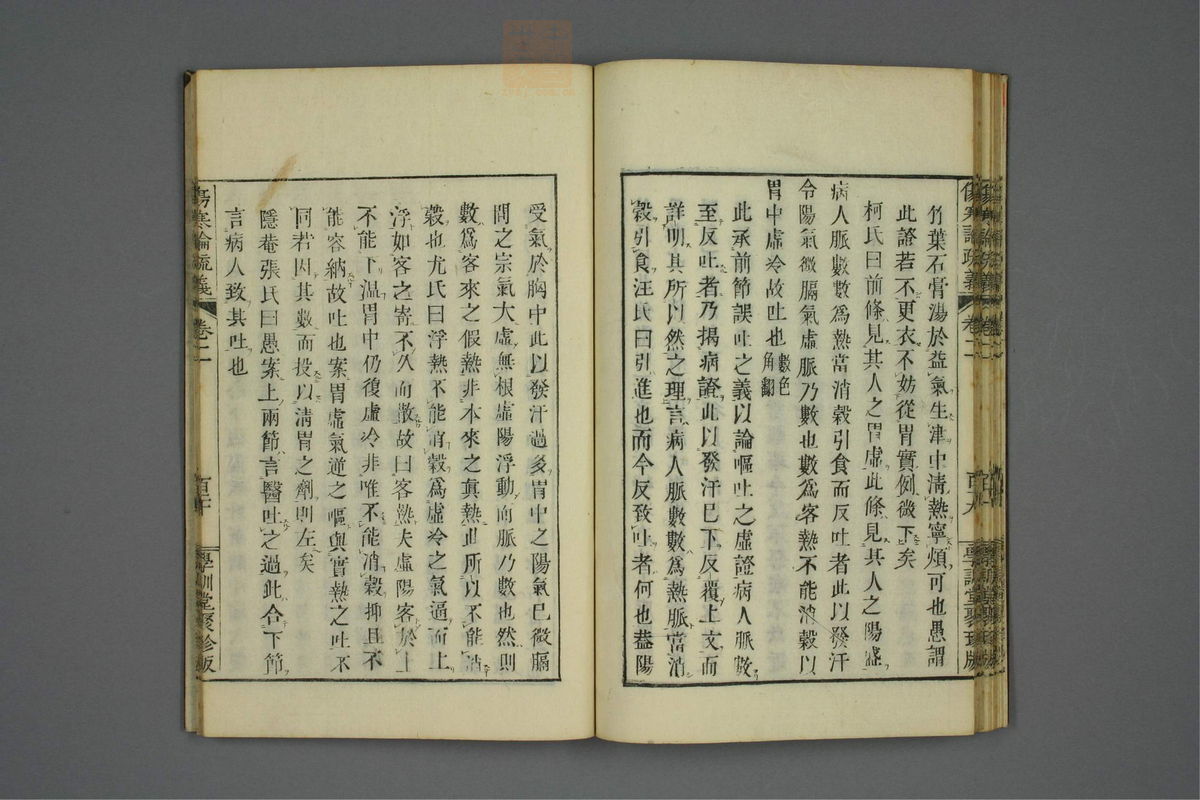 竹葉石膏湯於益氣生津中清熱寧煩可也愚謂
此證若不更衣不妨從胃實例微下矣
柯氏曰前條見其人之胃虛此條見其人之陽盛
病人脈數數爲熱當消穀引食而反吐者此以發汗
令陽氣微膈氣虛脈乃數也數爲客熱不能消穀以
胃中虛冷故吐也數色角翻
此承前節誤吐之義以論嘔吐之虛證病人脈數
至反吐者乃揭病證此以發汗已下反覆上文而
詳明其所以然之理言病人脈數數爲熱脈當消
穀引食汪氏曰引進也而今反致吐者何也蓋陽
受氣於胸中此以發汗過多胃中之陽氣已微膈
間之宗氣大虛無根虛陽浮動而脈乃數也然則
數爲客來之假熱非本來之眞熱此所以不能消
穀也尤氏曰浮熱不能消穀爲虛冷之氣逼而上
浮如客之寄不久而散故曰客熱夫虛陽客於上
不能下温胃中仍復虛冷非唯不能消穀抑且不
能容納故吐也案胃虛氣逆之嘔與實熱之吐不
同若因其數而投以淸胃之劑則左矣
隱菴張氏曰愚案上兩節言醫吐之過此合下節
言病人致其吐也
傷寒論疏義
卷二
學訓堂聚珍版